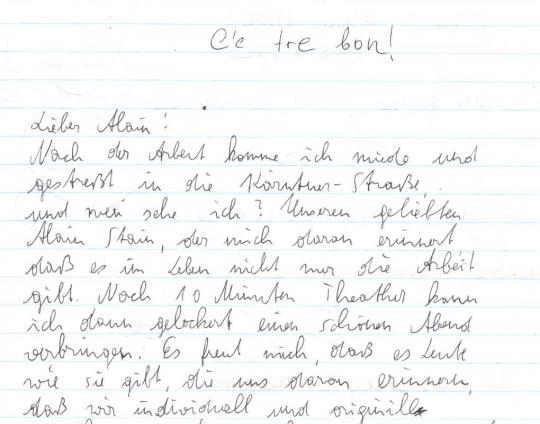 C'e tre bon!
Lieber Alain!
Nach der Arbeit komme ich müde und
gestreßt in die Kärntner-Straße,
und wen sehe ich? Unseren geliebten
Alain Stain, der mich daran erinnert
daß es im Leben nicht nur die Arbeit
gibt. Nach 10 Minuten Theather kann
ich dann gelockert einen schönen Abend
verbringen. Es freut mich, daß es Leute
wie sie gibt, die uns daran erinnern,
daß wir individuell und originell